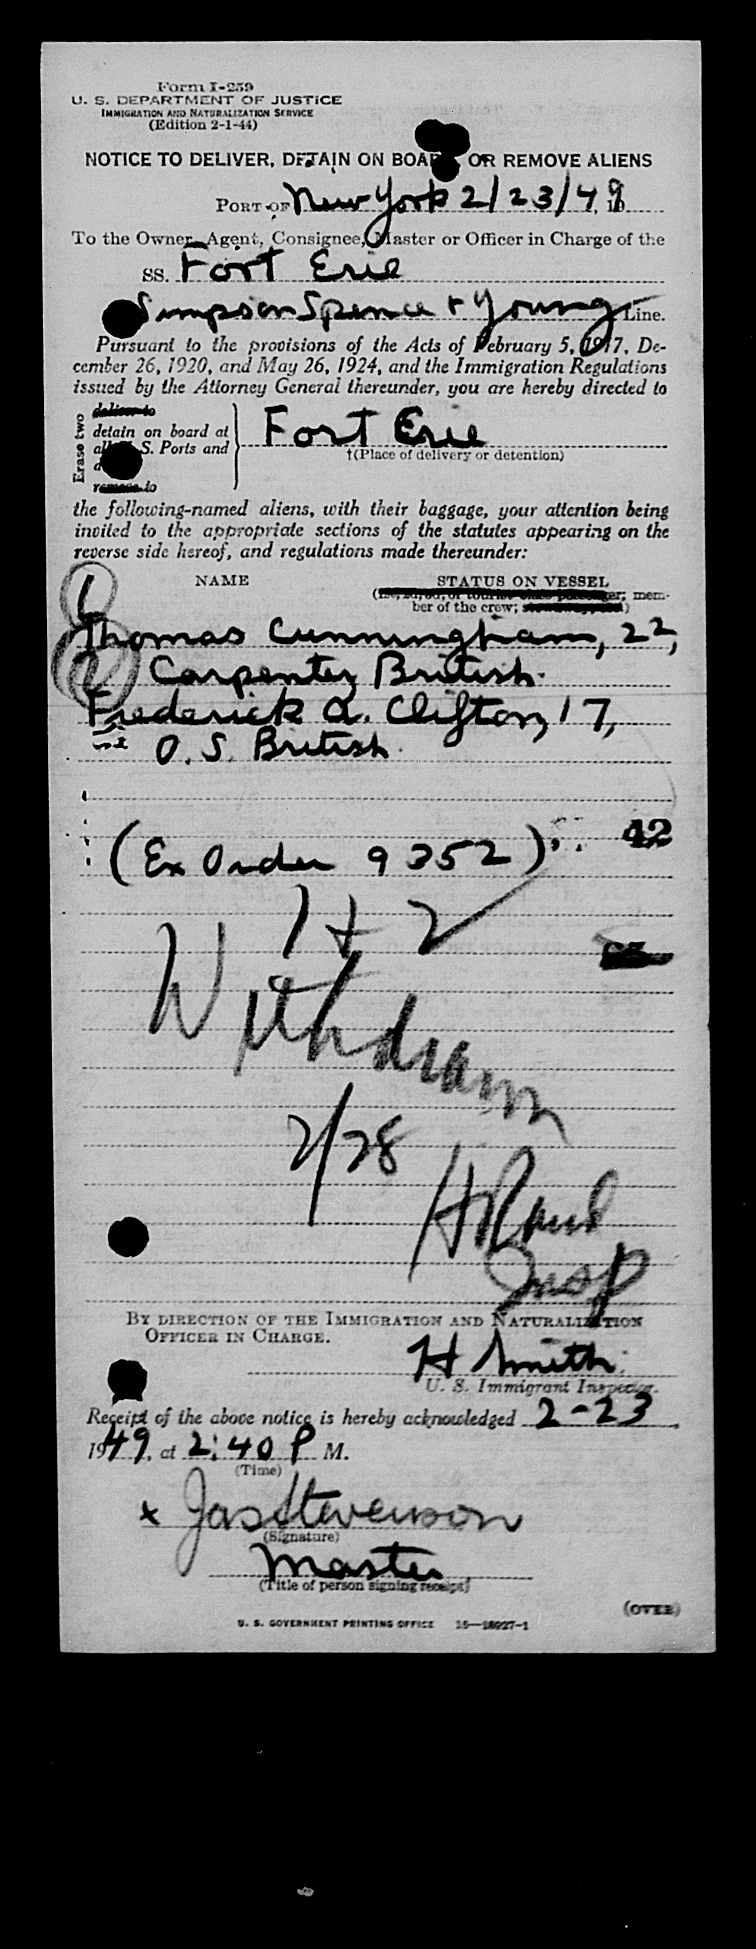 Form I-259
U. S. DEPARTMENT OF JUSTICE
IMMIGRATION AND NATURALIZATION SERVICE
(Edition 2-1-44)
NOTICE TO DELIVER, DETAIN ON BOARD, OR REMOVE ALIENS
PORT OF New York 2/23/49
To the Owner, Agent, Consignee, Master or Officer in Charge of the
SS. Fort Erie
Simpson Spence & Young Line.
Pursuant to the provisions of the Acts of February 5, 1917, De-
cember 26, 1920, and May 26, 1924, and the Immigration Regulations
issued by the Attorney General thereunder, you are hereby directed to
Erase two
deliver to
detain on board at
all U. S. Ports and
remove to
Fort Erie
†(Place of delivery or detention)
the following-named aliens, with their baggage, your attention being
invited to the appropriate sections of the statutes appearing on the
reverse side hereof, and regulations made thereunder:
NAME STATUS ON VESSEL
(1st, 2d, 3d, or tourist class passenger; mem-
ber of the crew; stowaway)
1
Thomas Cunningham, 22,
2 Carpenter, British.
Frederick A. Clifton, 17,
O. S. British.
(Ex Order 9352) 42
1 + 2
Withdrawn
2/28
Insp
BY DIRECTION OF THE IMMIGRATION AND NATURALIZATION
OFFICER IN CHARGE.
H Smith
U. S. Immigrant Inspector.
Receipt of the above notice is hereby acknowledged 2-23,
1949, at 2:40 P M.
(Time)
x Jas Stevenson
(Signature)
Master
(Title of person signing receipt)
(OVER)
U. S. GOVERNMENT PRINTING OFFICE 16—18927-1